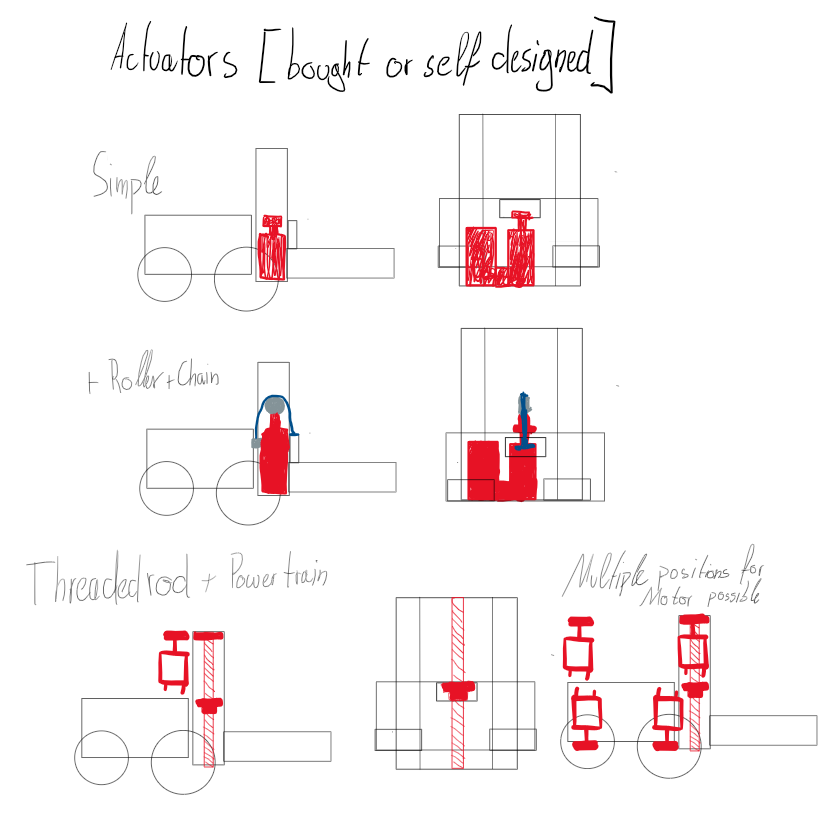 Actuators [bought or self designed]
Simple
+ Roller + Chain
Threaded rod + Power train
Multiple positions for
Motor possible